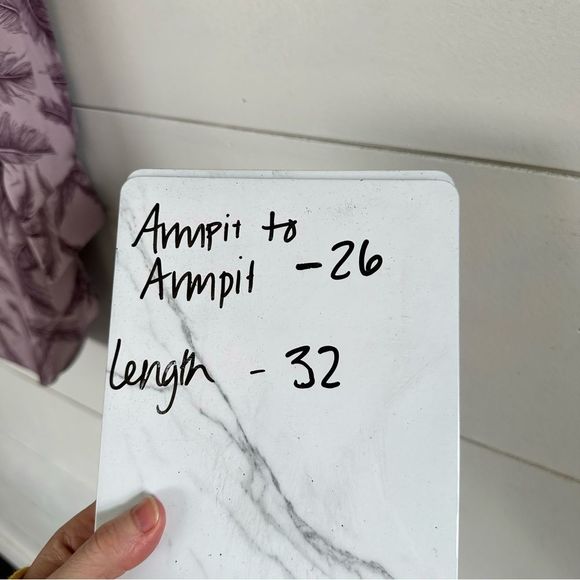 Armpit to
Armpit - 26
length - 32